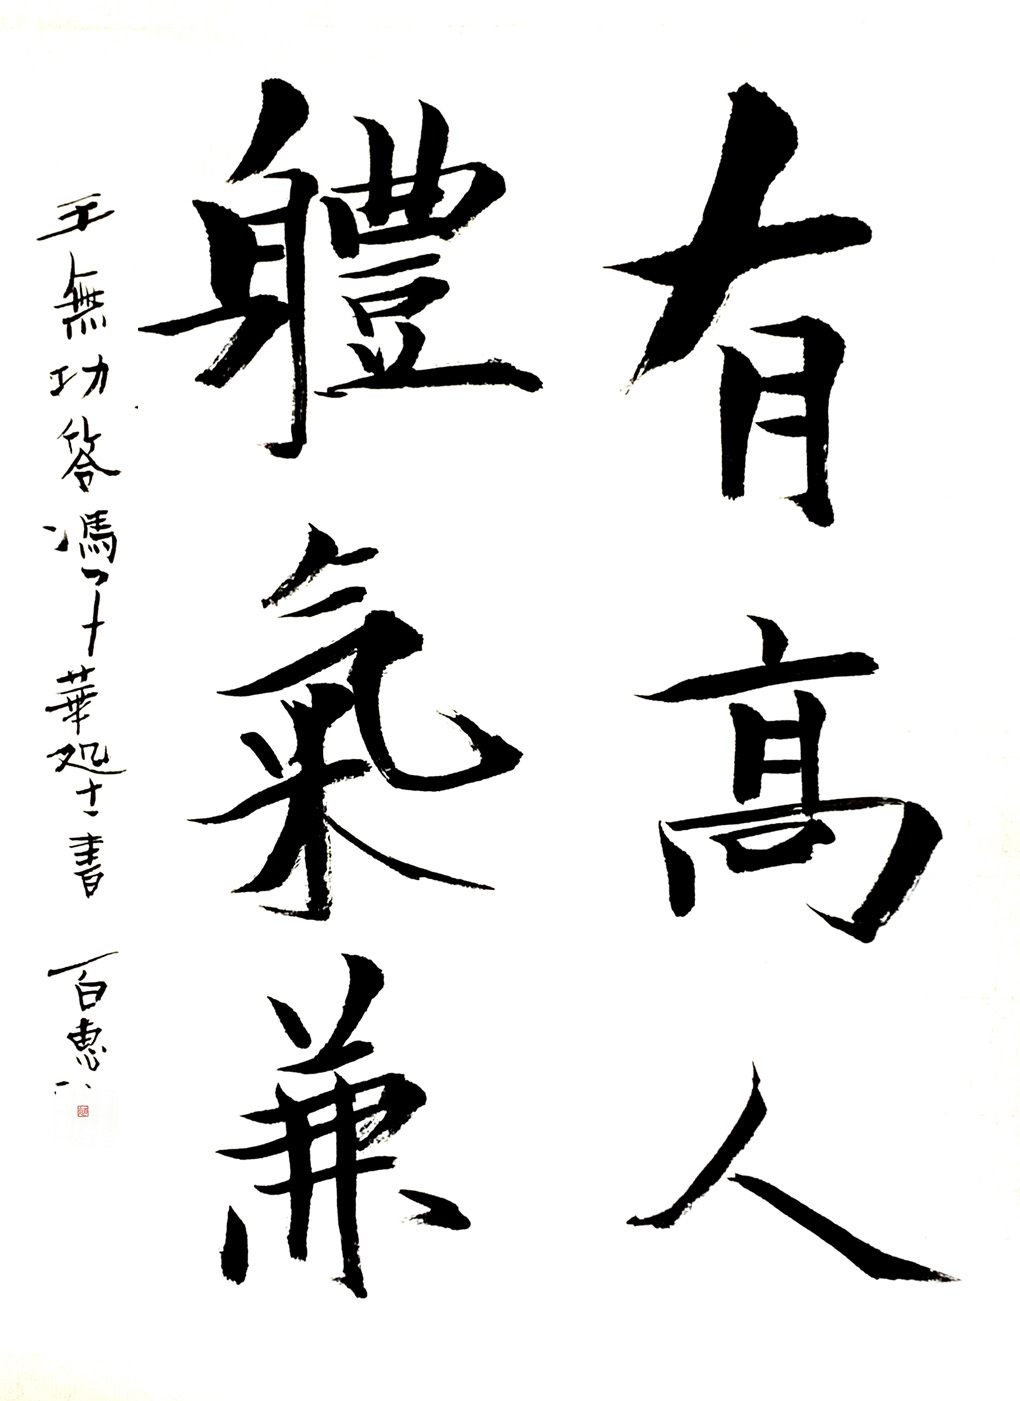 有高人
軆氣兼
王無功答馮子華処士書 百惠